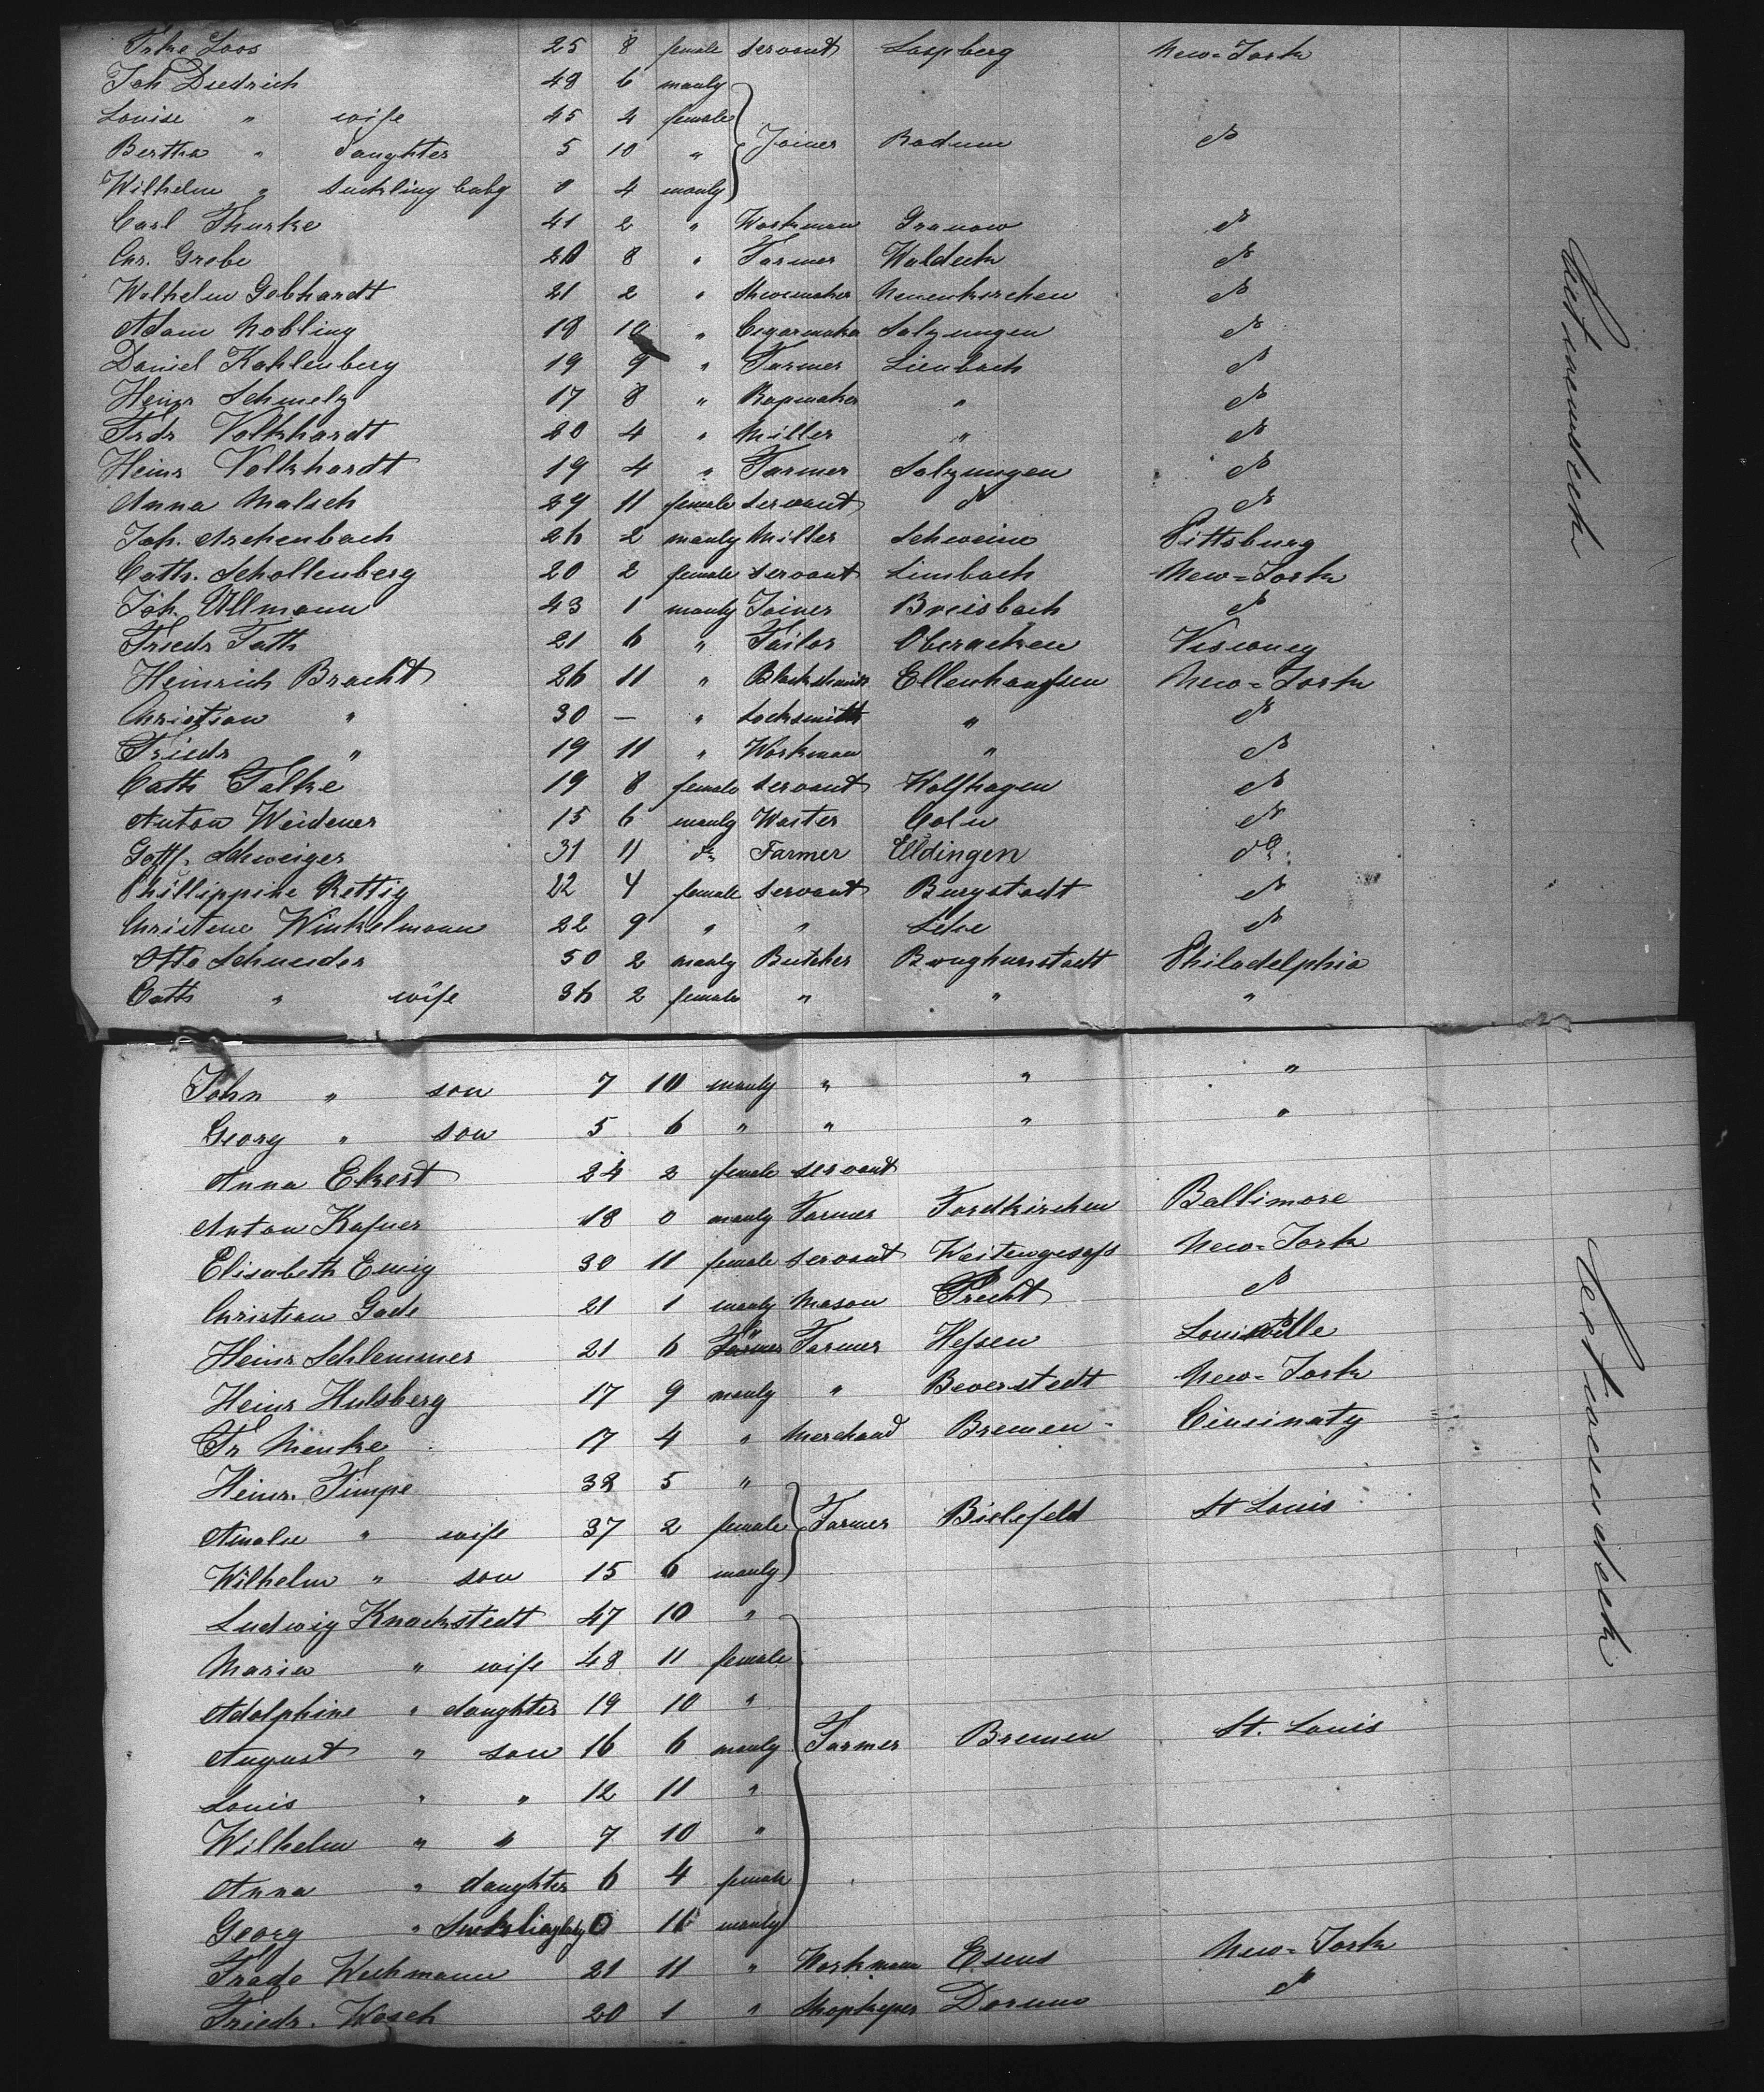 Frke Loos 25 8 female servant Laspberg New-York
Joh Diedrich 48 6 manly
Louise " wife 45 4 female
Bertha " daughter 5 10 " Joiner Radum d
Wilhelm " suckling baby 0 4 manly
Carl Thurke 41 2 " Workman Granow d
Chr. Grebe 20 8 " Farmer Waldeck d
Wilhelm Gebhardt 21 2 " Shoemaker Neuenkirchen d
Adam Nobling 18 10 " Cegarmaker Salzungen d
Daniel Kahlenberg 19 9 " Farmer Limbach d
Heinr Schmelz 17 8 " Ropmaker " d
Frdr Volkhardt 20 4 " Miller " d
Heinr Volkhardt 19 4 " Farmer Salzungen d
Anna Malsch 29 11 female servant d d
Joh. Aschenbach 26 2 manly Miller Schweina Pittsburg
Cath. Schollenberg 20 2 female servant Limbach New-York
Joh. Ullmann 43 1 manly Joiner Breisbach d
Friedr Fath 21 6 " Tailor Oberacken
Heinrich Bracht 26 11 " Blackshmith Ellenhausen New-York
Christian " 30 — " Locksmith " d
Friedr " 19 11 " Workman " d
Cath Falke 19 8 female servant Wolfhagen d
Anton Weidener 15 6 manly Waiter Coln d
Gottf. Schweiger 31 11 do Farmer Eldingen do.
Phillippine Rettig 22 4 female servant Burgstadt d
Christene Winkelmann 22 9 " " Leve d
Otto Schneider 50 2 manly Butcher Burghunstadt Philadelphia
Cath " wife 36 2 female " " "
John " son 7 10 manly " " "
Georg " son 5 6 " " " "
Anna Ekert 24 2 female servant
Anton Kafner 18 0 manly Farmer Fordkirchen Baltimore
Elisabeth Emig 30 11 female servant Weitengesass New-York
Christian Gade 21 1 manly Mason Precht d
Heinr Schlemmer 21 6 " Farmer Hessen Louisville
Heinr Hulsberg 17 9 manly " Beverstedt New-York
Fr Menke 17 4 " Merchand Bremen Cincinaty
Heinr. Timpe 38 5 "
Amalie " wife 37 2 female Farmer Bielefeld St Louis
Wilhelm " son 15 6 manly
Ludwig Knackstedt 47 10 "
Maria " wife 48 11 female
Adolphine " daughter 19 10 "
August " son 16 6 manly Farmer Bremen St. Louis
Louis " " 12 11 "
Wilhelm " " 7 10 "
Anna " daughter 6 4 female
Georg " Suckling baby 0 11 manly
Frado Wechmann 21 11 " Workmann Esens New-York
Friedr. Wesch 20 1 " Shopkeper Dorum d